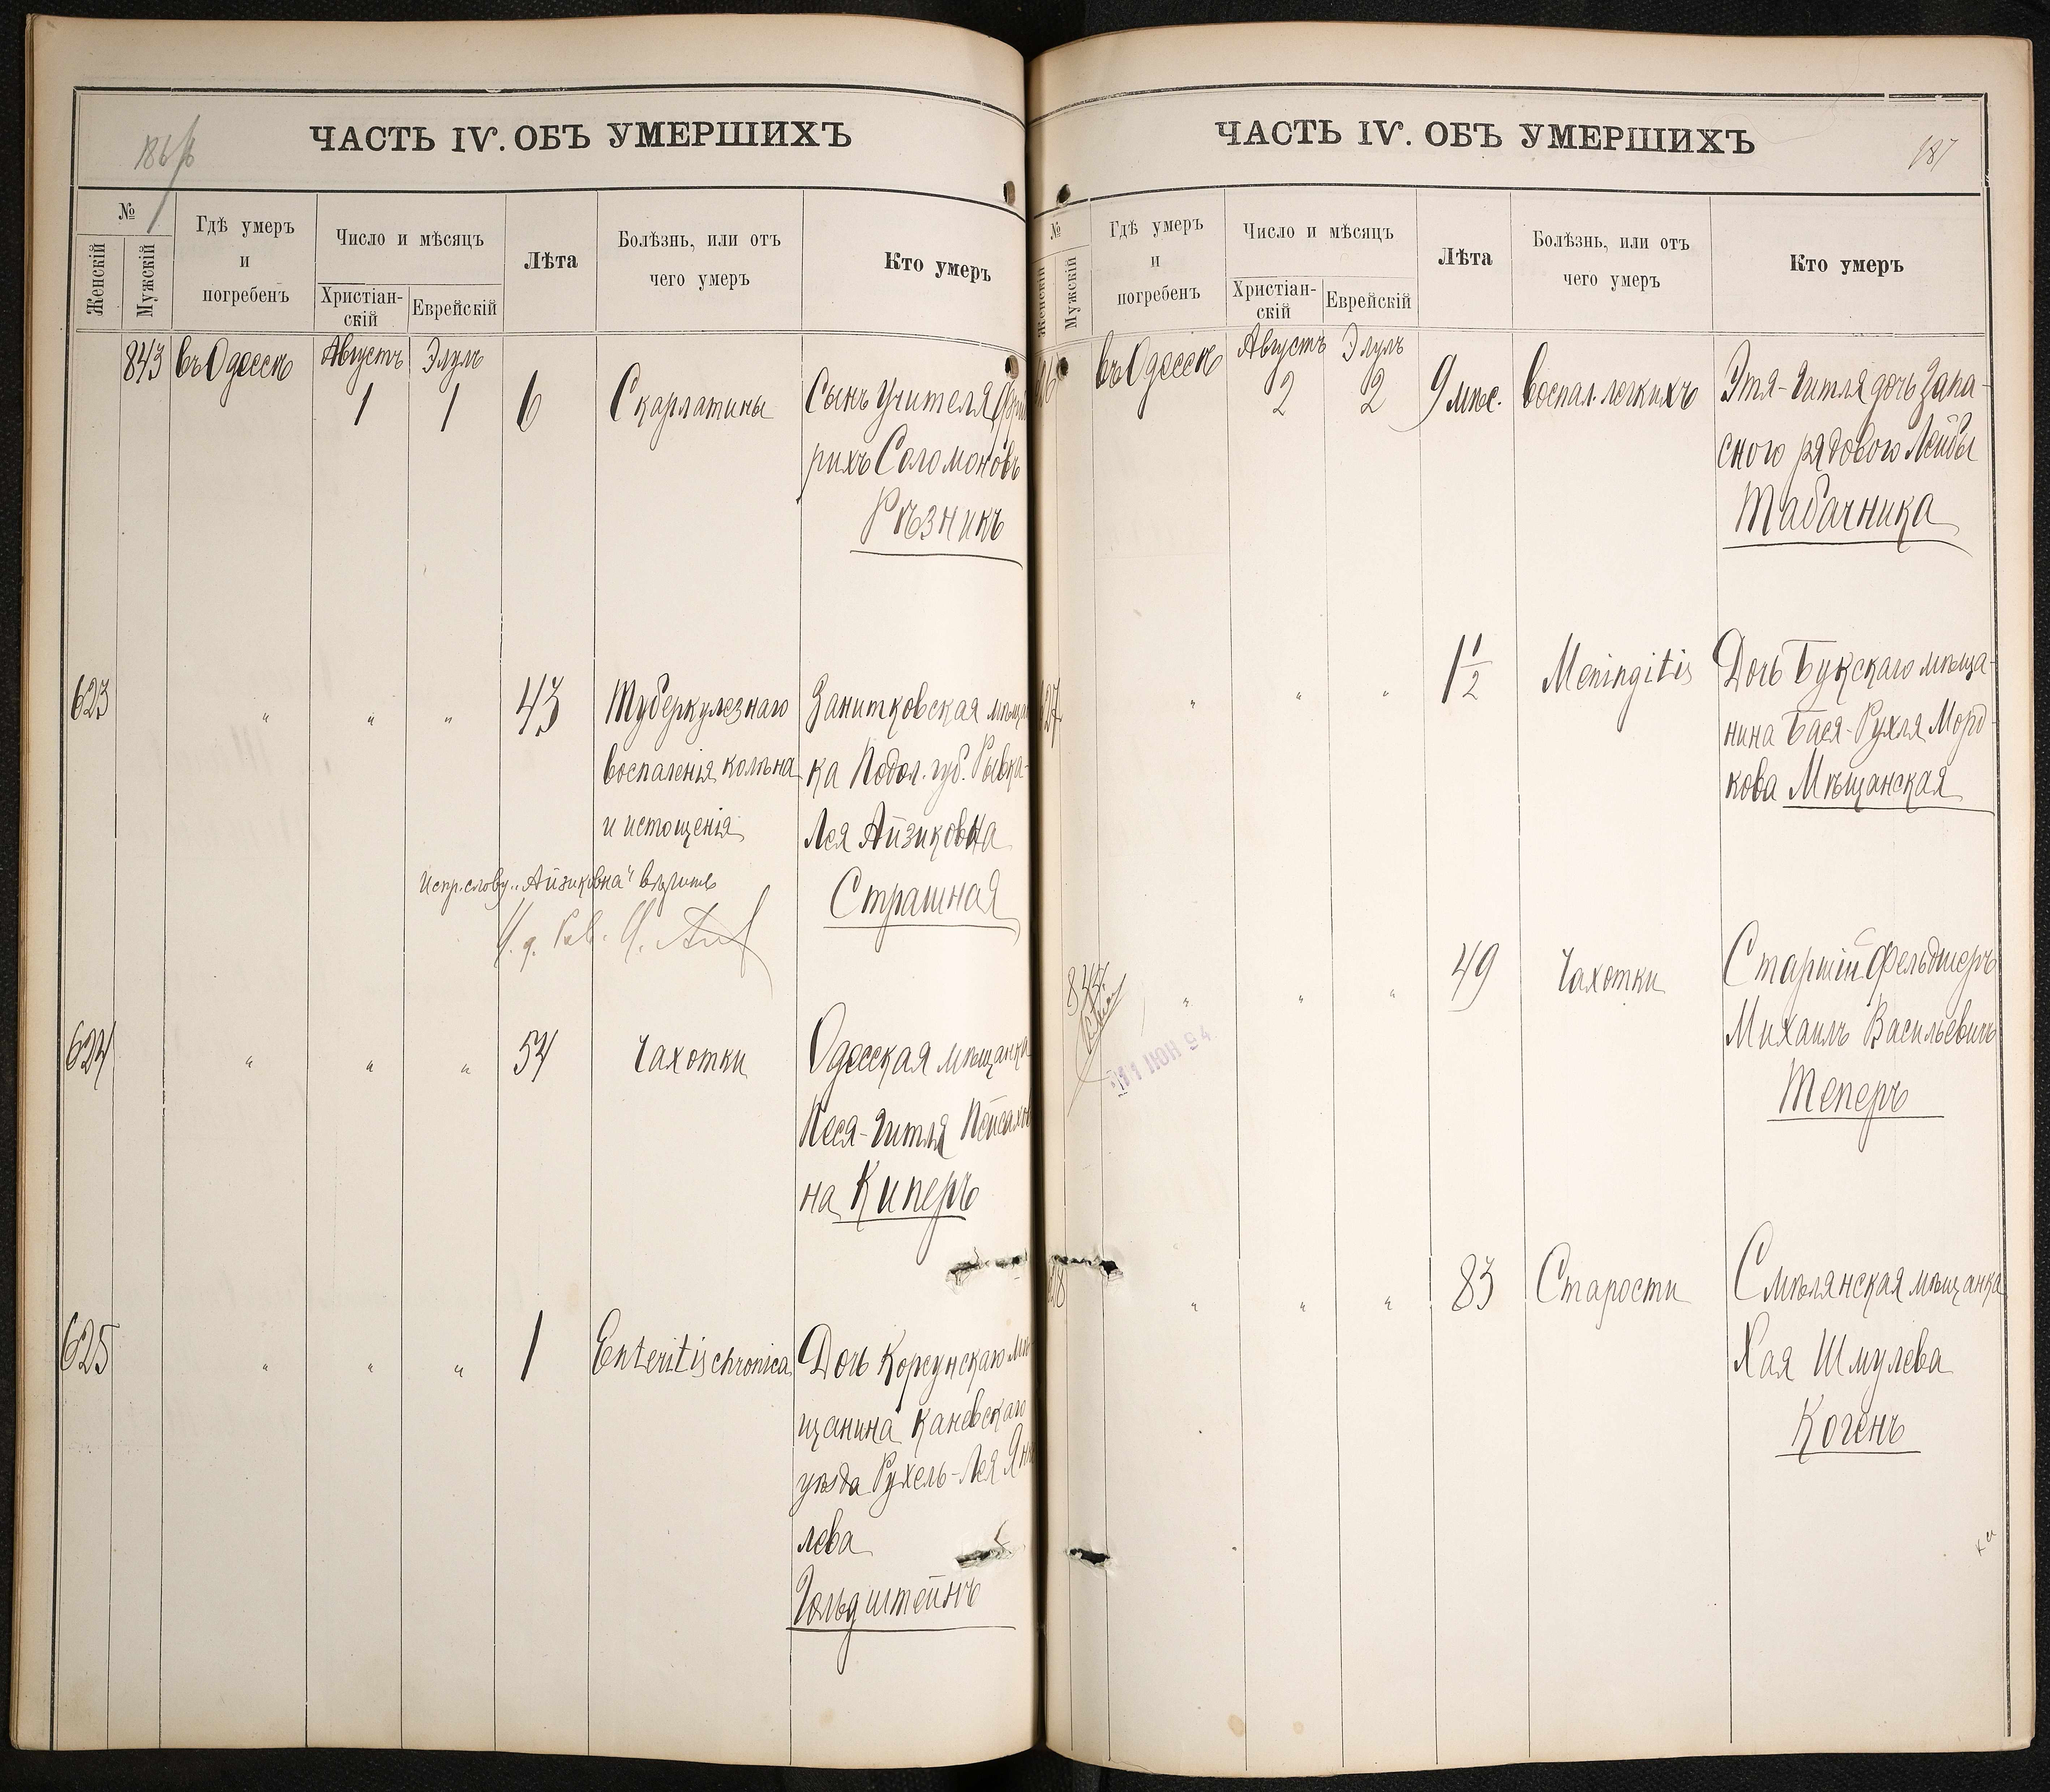 ЧАСТЬ IV. ОБЪ УМЕРШИХЪ
№
Женскій
Мужскій
Гдѣ умеръ
и
погребенъ
Число и мѣсяцъ
Христіан-
скій
Еврейскій
Лѣта
Болѣзнь, или отъ
чего умеръ
Кто умеръ
843 въ Одессѣ Августъ Элулъ
1 1 6 Скарлатины Сынъ Учителя
рихъ Соломоновъ
Рѣзникъ
623 " " " 43 Туберкулезнаго Занитковская
воспаленія колѣна ка Подол. губ. Рывка-
и истощенія Лея Айзиковна
Испр. слову "Айзиковна" вѣрить
Страшная
И. д. Рав.
624 " " " 54 Чахотки Одесская мѣщанка
Песя-Гитля
на Киперъ
625 " " " 1 Enteritis chronica Дочь Корсунскаго мѣ-
щанина Каневскаго
уѣзда Рухель-Лея
лева
Гольдштейнъ
ЧАСТЬ IV. ОБЪ УМЕРШИХЪ
187
№
Женскій
Мужскій
Гдѣ умеръ
и
погребенъ
Число и мѣсяцъ
Христіан-
скій
Еврейскій
Лѣта
Болѣзнь, или отъ
чего умеръ
Кто умеръ
въ Одессѣ Августъ Элулъ
2 2 9 мѣс. воспал. легкихъ Этя-Гитля дочь запа-
сного рядового Лейбы
Табачника
" " " 1 1/2 Meningitis Дочь Букскаго мѣща-
нина Бася-Рухля Морд-
кова Мѣщанская
844 " " " 49 Чахотки Старшій Фельдшеръ
Михаилъ Васильевичъ
Теперъ
11 ИЮН 94
" " " 83 Старости Смѣлянская мѣщанка
Хая Шмулева
Когенъ